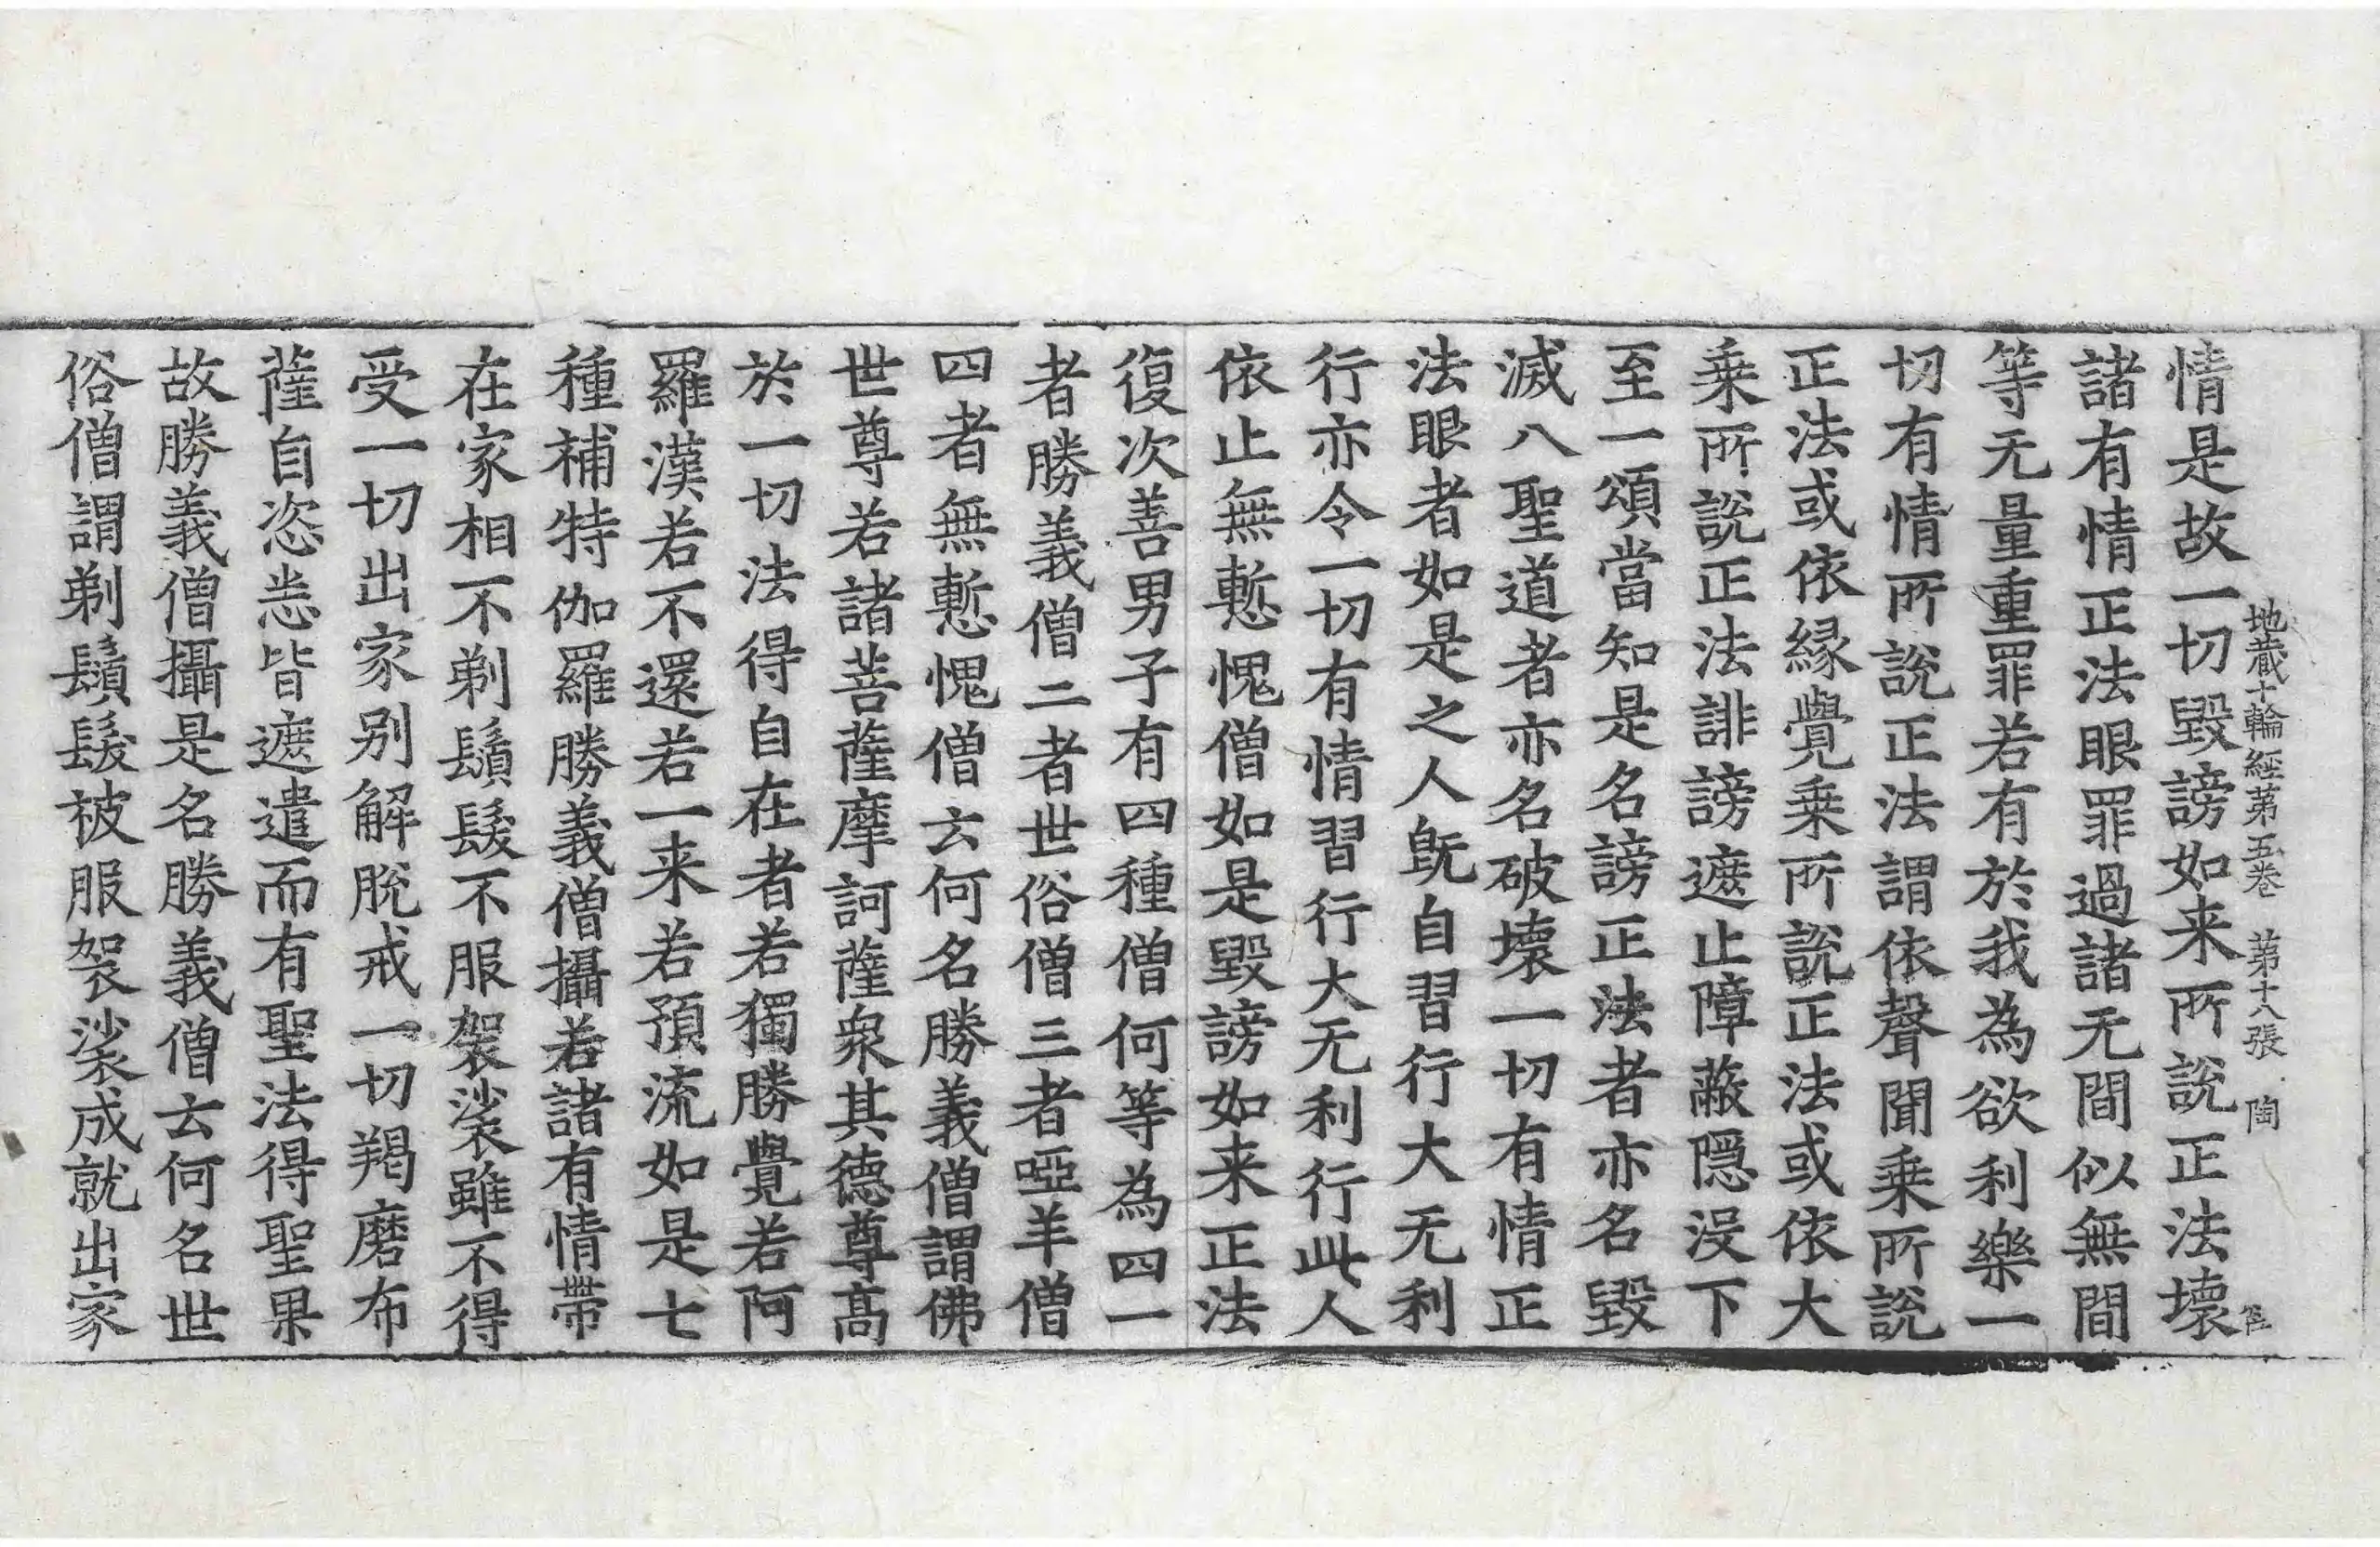 地蔵十輪経苐五巻　苐十八張　陶
情是故一切毀謗如来所說正法壞
諸有情正法眼罪過諸无間似無間
等无量重罪若有於我為欲利樂一
切有情所說正法謂依聲聞乗所說
正法或依縁覺乗所說正法或依大
乗所說正法誹謗遮止障蔽隱没下
至一頌當知是名謗正法者亦名毀
滅八聖道者亦名破壞一切有情正
法眼者如是之人旣自習行大无利
行亦令一切有情習行大无利行此人
依止無慙愧僧如是毀謗如来正法
復次善男子有四種僧何等為四一
者勝義僧二者世俗僧三者啞羊僧
四者無慙愧僧云何名勝義僧謂佛
世尊若諸菩薩摩訶薩衆其德尊髙
於一切法得自在者若獨勝覺若阿
羅漢若不還若一来若預流如是七
種補特伽羅勝義僧攝若諸有情帶
在家相不剃鬚髮不服袈裟雖不得
受一切出家别解脫戒一切羯磨布
薩自恣悉皆遮遣而有聖法得聖果
故勝義僧攝是名勝義僧云何名世
俗僧謂剃鬚髮被服袈裟成就出家